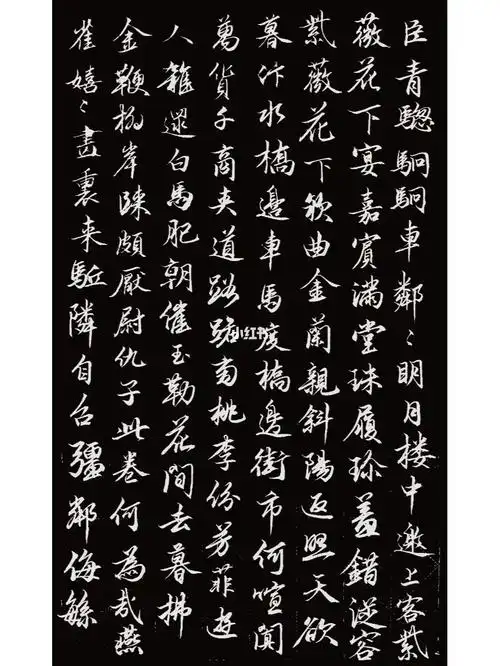 臣青騘駉駉車鄰〻明月楼中邀上客紫
薇花下宴嘉賓滿堂珠履珍羞錯從容
紫薇花下欵曲金蘭親斜陽返照天欲
暮汴水橋邊車馬度橋邊街市何喧闐
萬貨千商夾道路桃李份芳菲遊
人雜遝白馬肥朝催玉勒花間去暮拂
金鞭柳岸頗厭尉仇子此卷何為哉燕
雀嬉〻畫裏来駈隣自召彊鄰侮緜
小红书